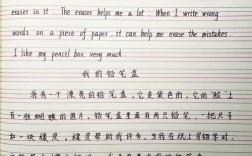 eraser in it . The eraser helps me a lot . When I write wrong
words on a piece of paper , it can help me erase the mistakes .
I like my pencil box very much .
我的铅笔盒
我有一个漂亮的铅笔盒，它是紫色的，它的"脸"上
有一些蝴蝶的图片，铅笔盒里面有两只铅笔，一把尺子
和一块橡皮，橡皮帮助我许多，当我在纸上写错字时，